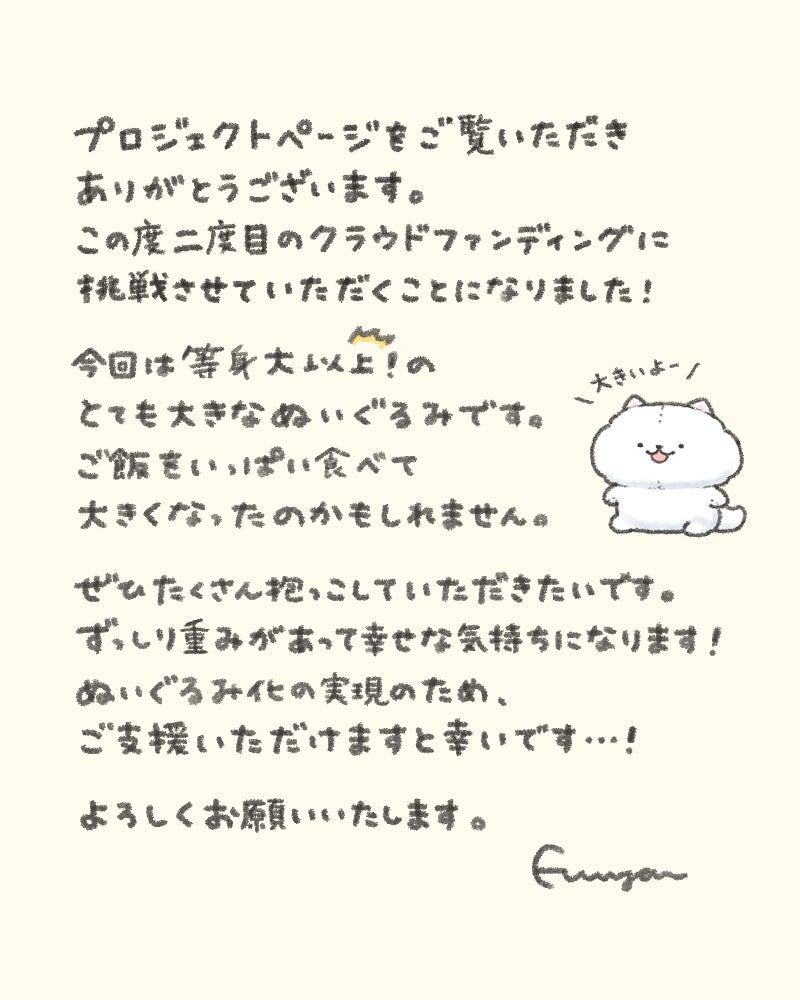 プロジェクトページをご覧いただき
ありがとうございます。
この度二度目のクラウドファンディングに
挑戦させていただくことになりました!
今回は等身大以上!の
とても大きなぬいぐるみです。
ご飯をいっぱい食べて
大きくなったのかもしれません。
大きいよー
ぜひたくさん抱っこしていただきたいです。
ずっしり重みがあって幸せな気持ちになります!
ぬいぐるみ化の実現のため、
ご支援いただけますと幸いです…!
よろしくお願いいたします。